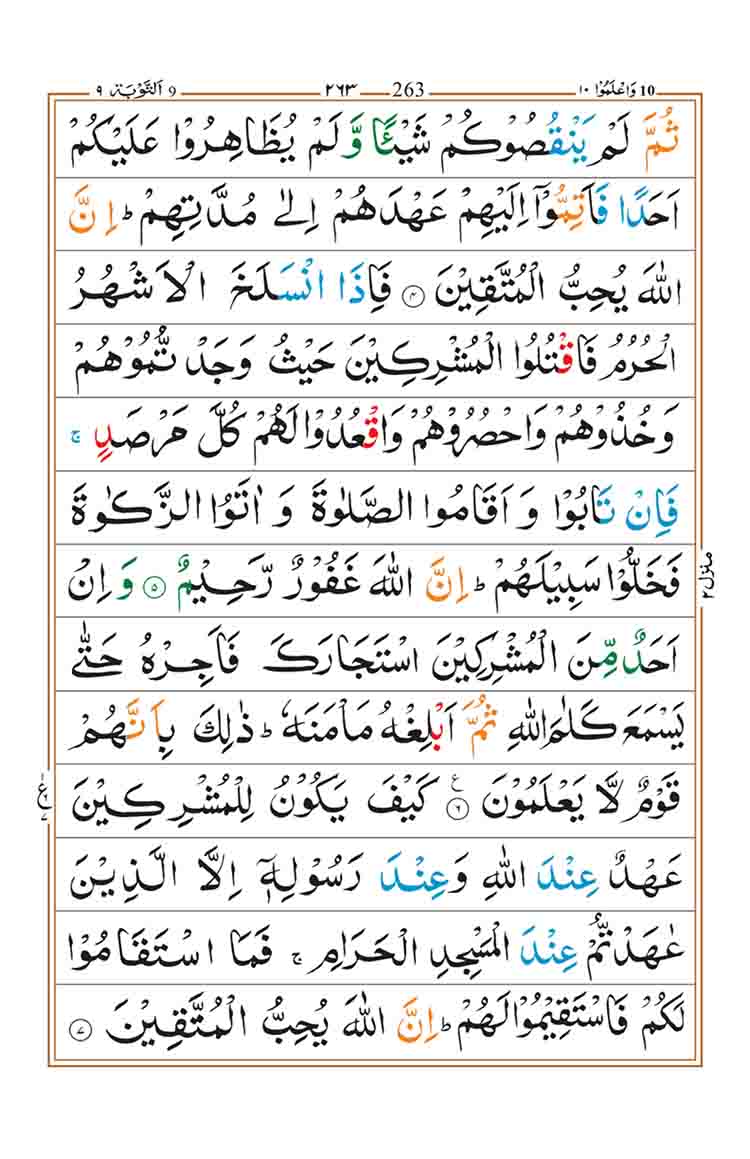 10 وَاعْلَمُوْۤا ١٠ 263 ٢٦٣ 9 اَلتَّوْبَة ٩
ثُمَّ لَمْ يَنْقُصُوْكُمْ شَيْـًٔا وَّلَمْ يُظَاهِرُوْا عَلَيْكُمْ
اَحَدًا فَاَتِمُّوْۤا اِلَيْهِمْ عَهْدَهُمْ اِلٰى مُدَّتِهِمْ ؕ اِنَّ
اللّٰهَ يُحِبُّ الْمُتَّقِيْنَ ۝۴ فَاِذَا انْسَلَخَ الْاَشْهُرُ
الْحُرُمُ فَاقْتُلُوا الْمُشْرِكِيْنَ حَيْثُ وَجَدْتُّمُوْهُمْ
وَخُذُوْهُمْ وَاحْصُرُوْهُمْ وَاقْعُدُوْا لَهُمْ كُلَّ مَرْصَدٍ ۚ
فَاِنْ تَابُوْا وَاَقَامُوا الصَّلٰوةَ وَاٰتَوُا الزَّكٰوةَ
فَخَلُّوْا سَبِيْلَهُمْ ؕ اِنَّ اللّٰهَ غَفُوْرٌ رَّحِيْمٌ ۝۵ وَاِنْ
اَحَدٌ مِّنَ الْمُشْرِكِيْنَ اسْتَجَارَكَ فَاَجِرْهُ حَتّٰى
يَسْمَعَ كَلٰمَ اللّٰهِ ثُمَّ اَبْلِغْهُ مَاْمَنَهٗ ؕ ذٰلِكَ بِاَنَّهُمْ
قَوْمٌ لَّا يَعْلَمُوْنَ ۝۶ ع كَيْفَ يَكُوْنُ لِلْمُشْرِكِيْنَ
عَهْدٌ عِنْدَ اللّٰهِ وَعِنْدَ رَسُوْلِهٖۤ اِلَّا الَّذِيْنَ
عٰهَدْتُّمْ عِنْدَ الْمَسْجِدِ الْحَرَامِ ۚ فَمَا اسْتَقَامُوْا
لَكُمْ فَاسْتَقِيْمُوْا لَهُمْ ؕ اِنَّ اللّٰهَ يُحِبُّ الْمُتَّقِيْنَ ۝۷
منزل ٢